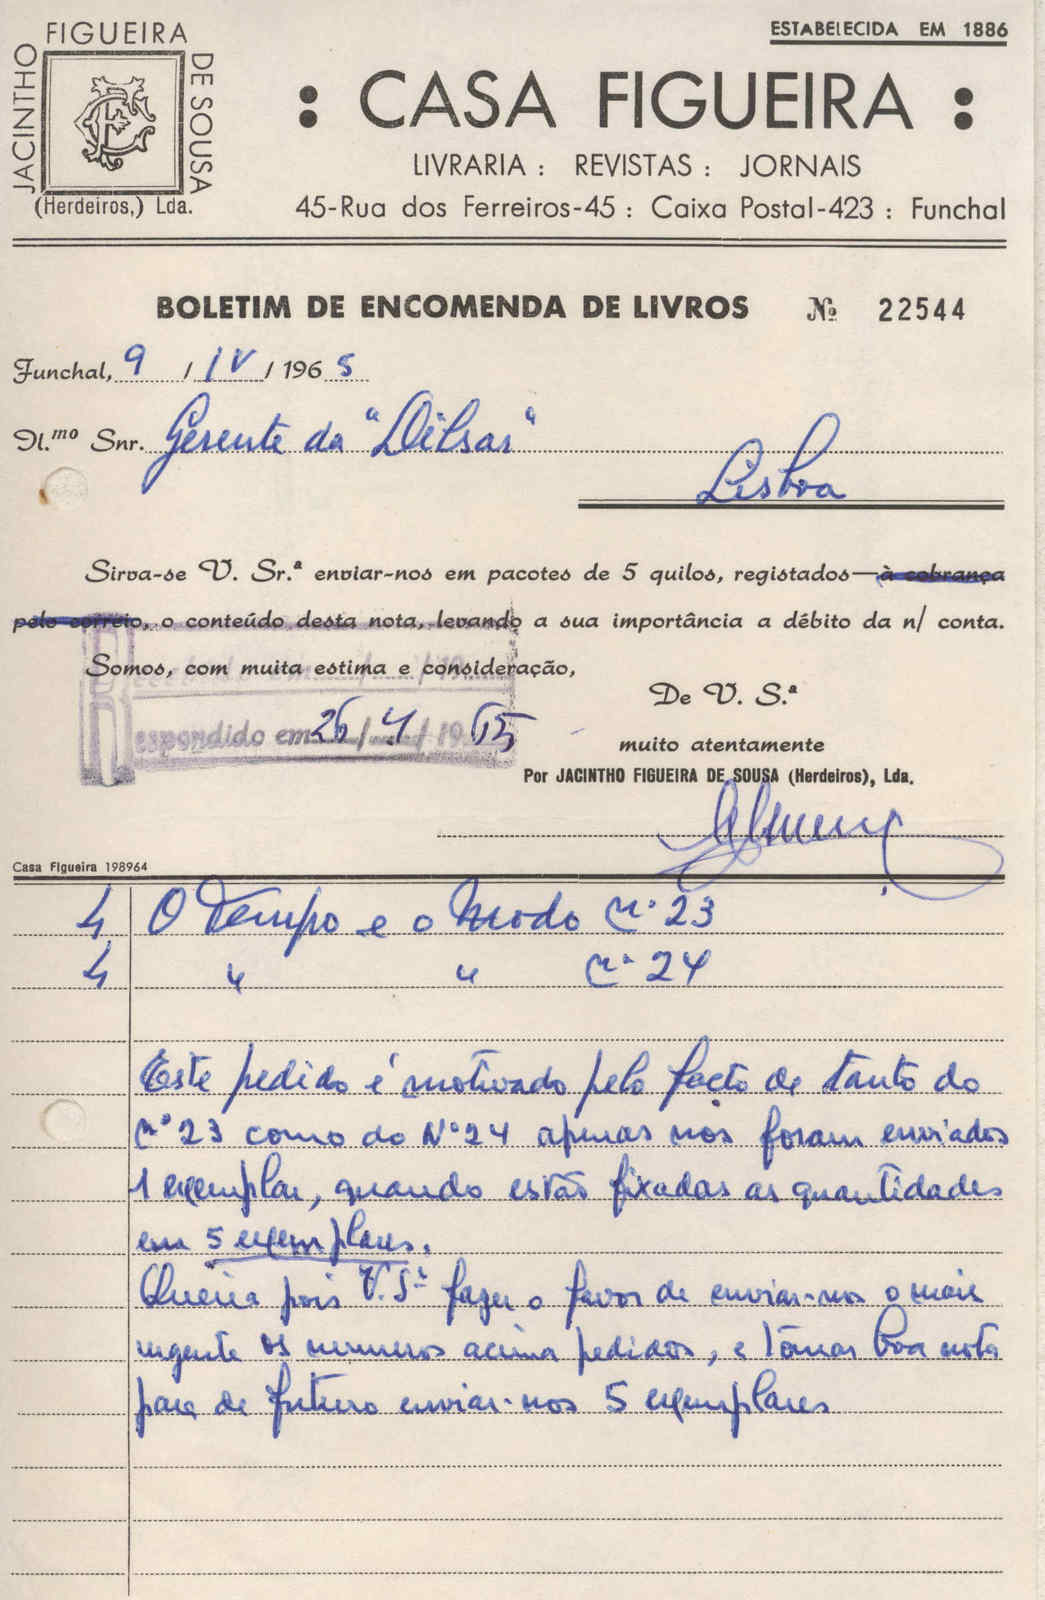 FIGUEIRA
JACINTHO
DE SOUSA
(Herdeiros,) Lda.
ESTABELECIDA EM 1886
: CASA FIGUEIRA :
LIVRARIA : REVISTAS : JORNAIS
45-Rua dos Ferreiros-45 : Caixa Postal-423 : Funchal
BOLETIM DE ENCOMENDA DE LIVROS Nº 22544
Funchal, 9 / IV / 1965
Il.mo Snr. Gerente da "Dilsar"
Lisboa
Sirva-se V. Sr.ª enviar-nos em pacotes de 5 quilos, registados—à cobrança
pelo correio, o conteúdo desta nota, levando a sua importância a débito da n/ conta.
Somos, com muita estima e consideração,
/ / 19
De V. S.ª
espondido em 26 / 4 / 1965
muito atentamente
Por JACINTHO FIGUEIRA DE SOUSA (Herdeiros), Lda.
Casa Figueira 198964
4 O Tempo e o Modo nº 23
4 " " nº 24
Este pedido é motivado pelo facto de tanto do
nº 23 como do Nº 24 apenas nos foram enviados
1 exemplar, quando estão fixadas as quantidades
em 5 exemplares.
Queira pois V. Sª fazer o favor de enviar-nos o mais
urgente os numeros acima pedidos, e tomar boa nota
para de futuro enviar-nos 5 exemplares